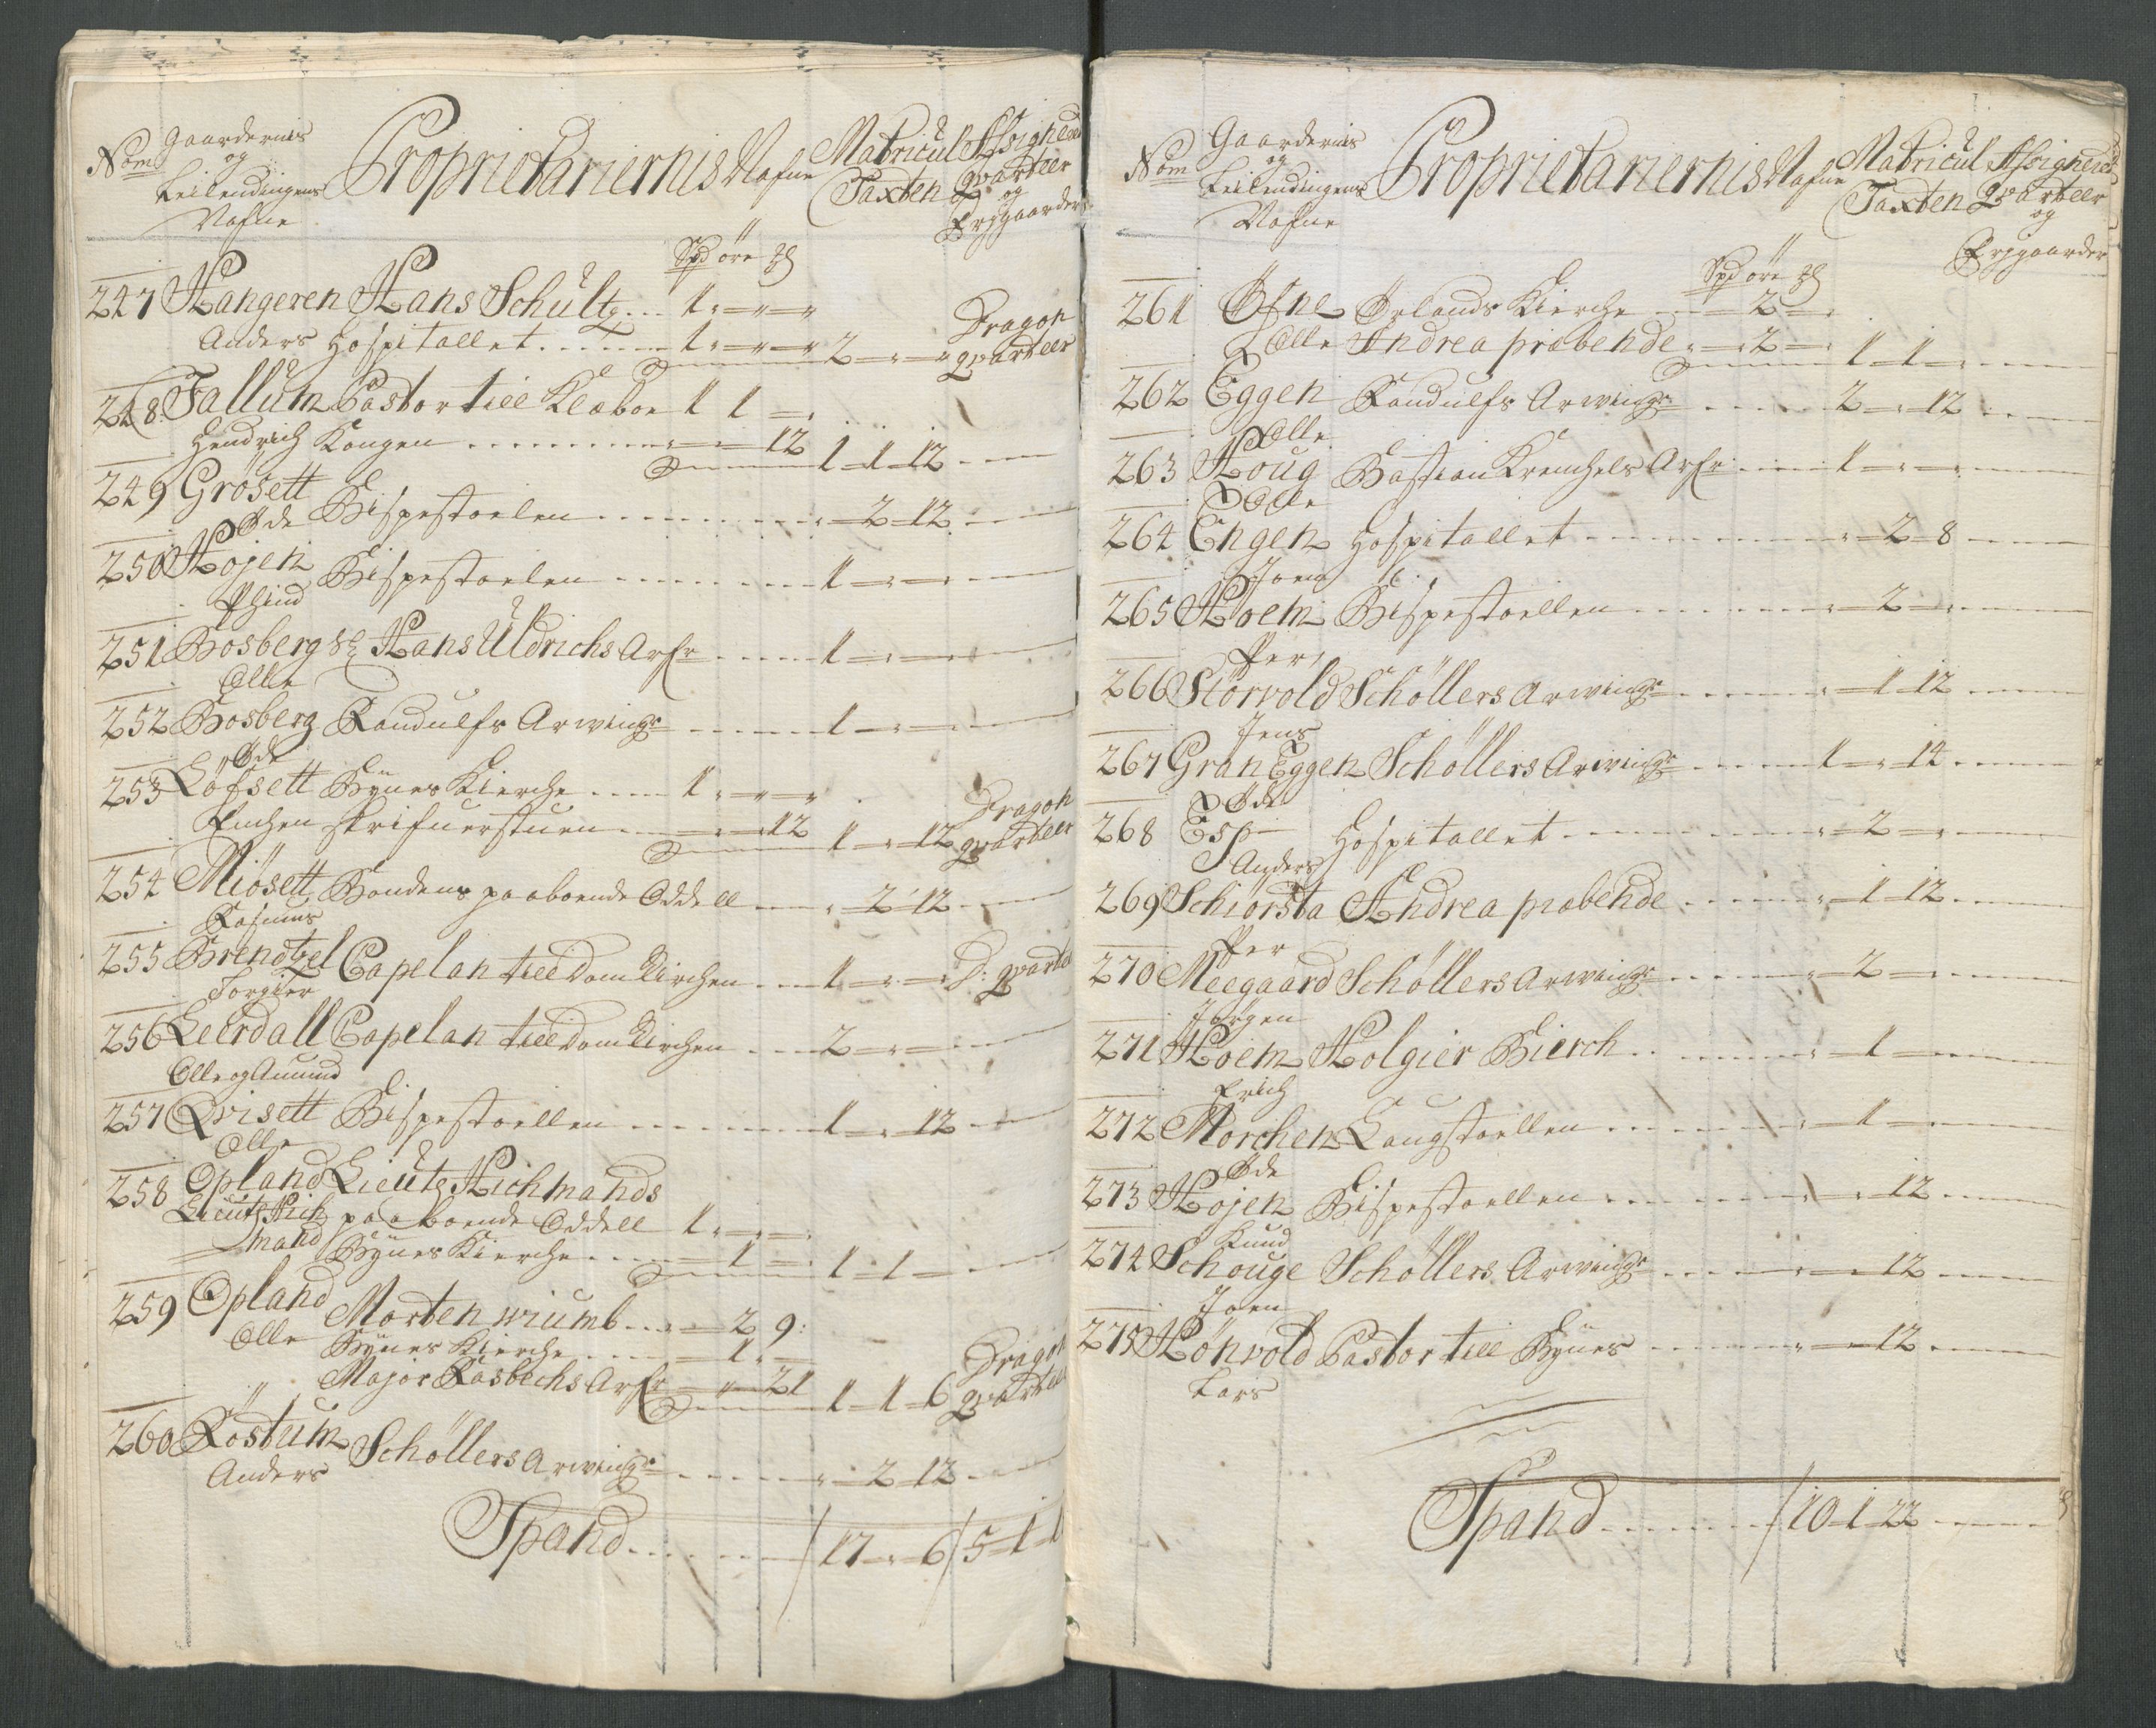 Nom Gaardernis og Leilendingens Nafne Proprietariernis Nafne Matricul Taxten Afsigheed qvarteer og Ersgaarder
Spd öre
247 Hangeren Hans Schultz ... 1 " "
Anders Hospitallet ... 1 " " 2 " " Dragon qvarteer
248 Fallum Pastor till Klæboe 1 1 "
Hendrich Kongen ... " " 12 1 1 12
249 Grösett
Öde Bispestoelen ... " 2 12
250 Höjen
Phind Bispestoelen ... 1 " "
251 Bosberg Sl Hans Uldrichs Arfr ... 1 " "
Olle
252 Bosberg Randulfs Arwinger ... 1 " "
Öde
253 Löfsett Bynes Kierche ... 1 " "
Enchen skrifuerstuen ... " " 12 1 " 12 Dragon qvarteer
254 Miösett Bondens paaboende Oddell ... " 2 12
Rasmus
255 Brendtzel Capelan till Dom Kirchen ... 1 " " D: qvarte
Torgier
256 Leerdall Capelan till Dom Kirchen ... 2 " "
Olle og Amund
257 Qvisett Bispestoellen ... 1 " 12
Olle
258 Opland Lieut Hichmands
Lieut Hich paaboende Oddell 1 " "
mand Bynes Kierche ... " 1 " 1 1 "
259 Opland
Morten wiumb ... " 2 9
Olle Bynes Kierche ... " 1 "
Major Rasbechs Arfr " " 21 1 1 6 Dragon qvarteer
260 Röstum Schöllers Arwinger ... " 2 12
Anders
Spand ... 17 " 6 5 1 1
Nom Gaardernis og Leilendingens Nafne Proprietariernis Nafne Matricul Taxten Afsigheed Qvarteer og Ersgaarder
Spd öre
261 Öfne Örlands Kierche ... " 2 "
Olle Andrea præbende " 2 " 1 1 "
262 Eggen Randulfs Arwinger ... 2 " 12
Olle
263 Houg Bastian Krenchels Arfr ... 1 " "
Olle
264 Engen Hospitallet ... " 2 8
Joen
265 Hoem Bispestoellen ... " 2 "
Per
266 Störvold Schöllers Arwinger ... " 1 12
Jens
267 Gran Eggen Schöllers Arwinger ... 1 " 14
Öde
268 Esp Hospitallet ... " 2 "
Anders
269 Schiørsta Andrea præbende ... " 1 12
Per
270 Meegaard Schöllers Arwinger ... " 2 "
Jörgen
271 Hoem Holgier Bierch ... " 1 "
Erich
272 Morchen Laugstoellen ... " 1 "
Öde
273 Höjen Bispestoellen ... " " 12
Knud
274 Schouge Schöllers Arwinger ... " " 12
Joen
275 Hönvold Pastor till Bynes ... " " 12
Lars
Spand ... 10 1 22